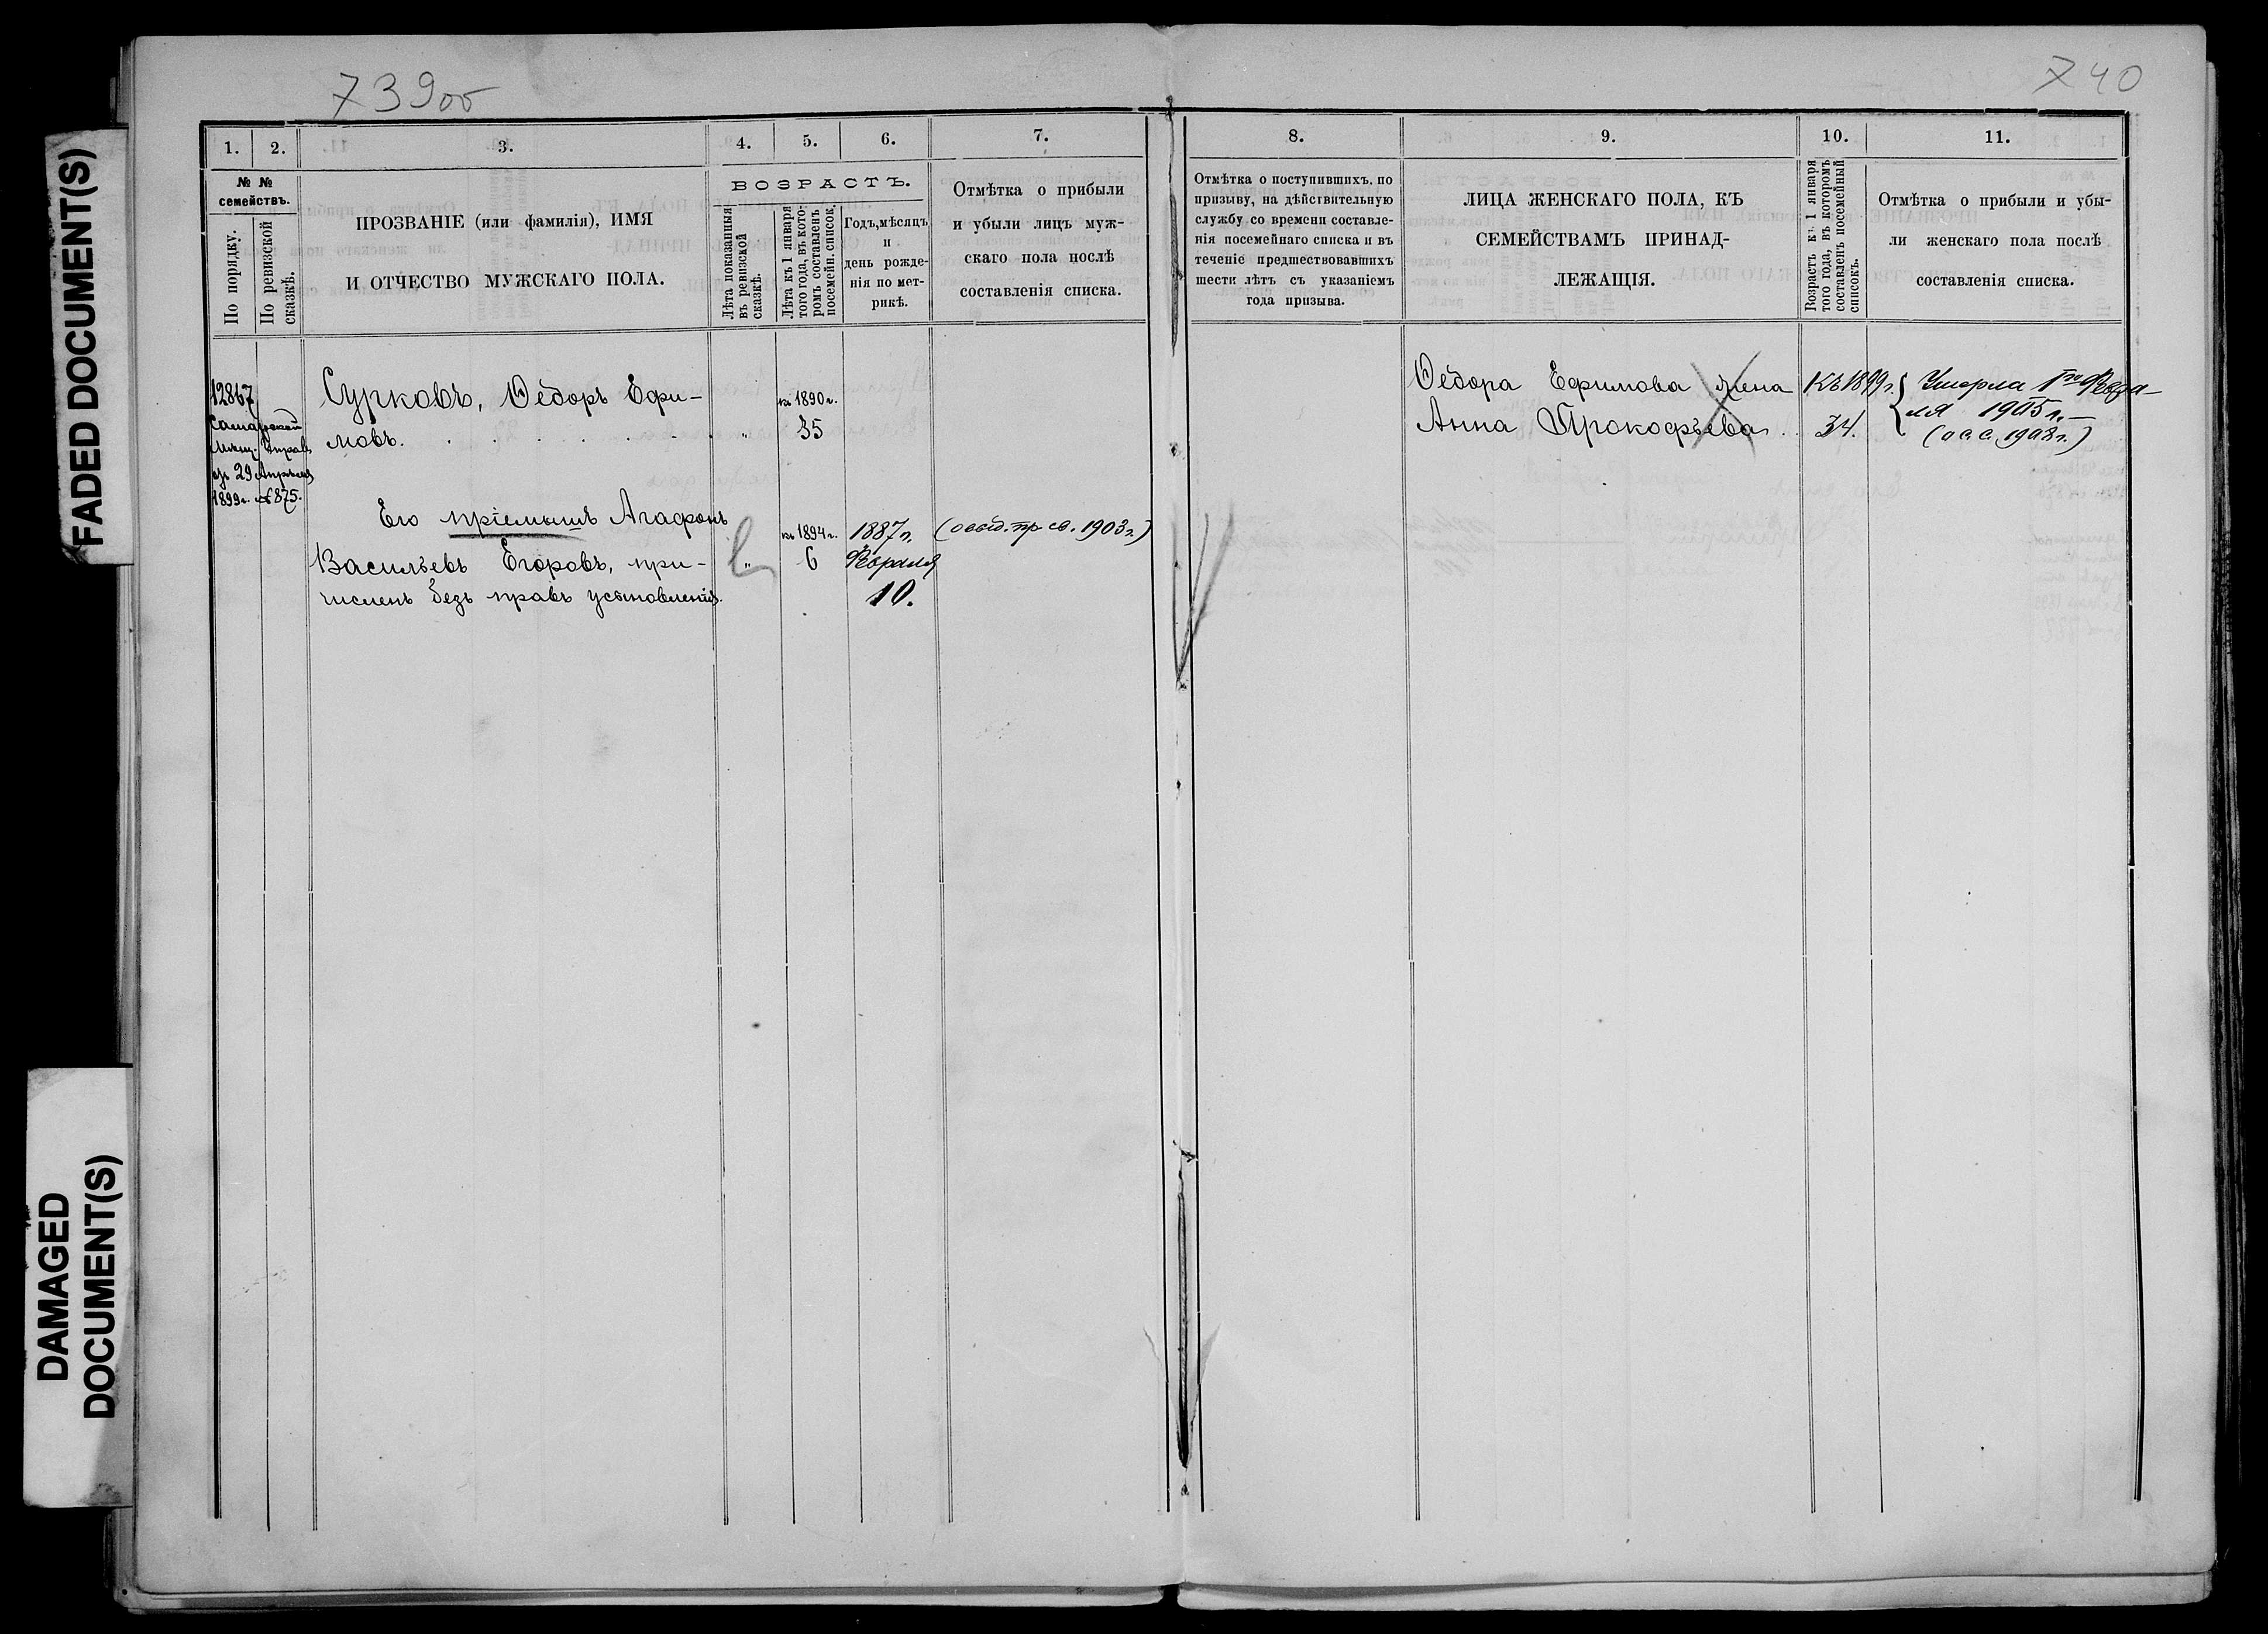 FADED DOCUMENT(S)
DAMAGED
DOCUMENT(S)
739об
1.
2.
3.
4.
5.
6.
7.
№ №
семействъ.
По порядку.
По ревизской
сказкѣ.
ПРОЗВАНІЕ (или фамилія), ИМЯ
И ОТЧЕСТВО МУЖСКАГО ПОЛА.
ВОЗРАСТЪ.
Лѣта показанныя
въ ревизской
сказкѣ.
Лѣта къ 1 января
того года, въ кото-
ромъ составленъ
посемейн. список.
Годъ, мѣсяцъ
и
день рожде-
нія по мет-
рикѣ.
Отмѣтка о прибыли
и убыли лицъ муж-
скаго пола послѣ
составленія списка.
12867
Самарской
Мѣщ. Управ.
29 Апрѣля
1899г. № 875.
Сурковъ, Ѳедоръ Ефи-
мовъ.
къ 1890 г.
35
Его пріемышъ Агафонъ
Васильевъ Егоровъ, при-
численъ безъ правъ усыновленія.
"
къ 1894 г.
6
1887 г.
Февраля
10.
(освид. пр св. 1903 г.)
740
8.
9.
10.
11.
Отмѣтка о поступившихъ, по
призыву, на дѣйствительную
службу со времени составле-
нія посемейнаго списка и въ
теченіе предшествовавшихъ
шести лѣтъ съ указаніемъ
года призыва.
ЛИЦА ЖЕНСКАГО ПОЛА, КЪ
СЕМЕЙСТВАМЪ ПРИНАД-
ЛЕЖАЩІЯ.
Возрастъ къ 1 января
того года, въ которомъ
составленъ посемейный
списокъ.
Отмѣтка о прибыли и убы-
ли женскаго пола послѣ
составленія списка.
Ѳедора Ефимова жена
Анна Прокофьева
Къ 1899 г.
34.
Умерла 1го Февра-
ля 1905 г.
1908 г.)